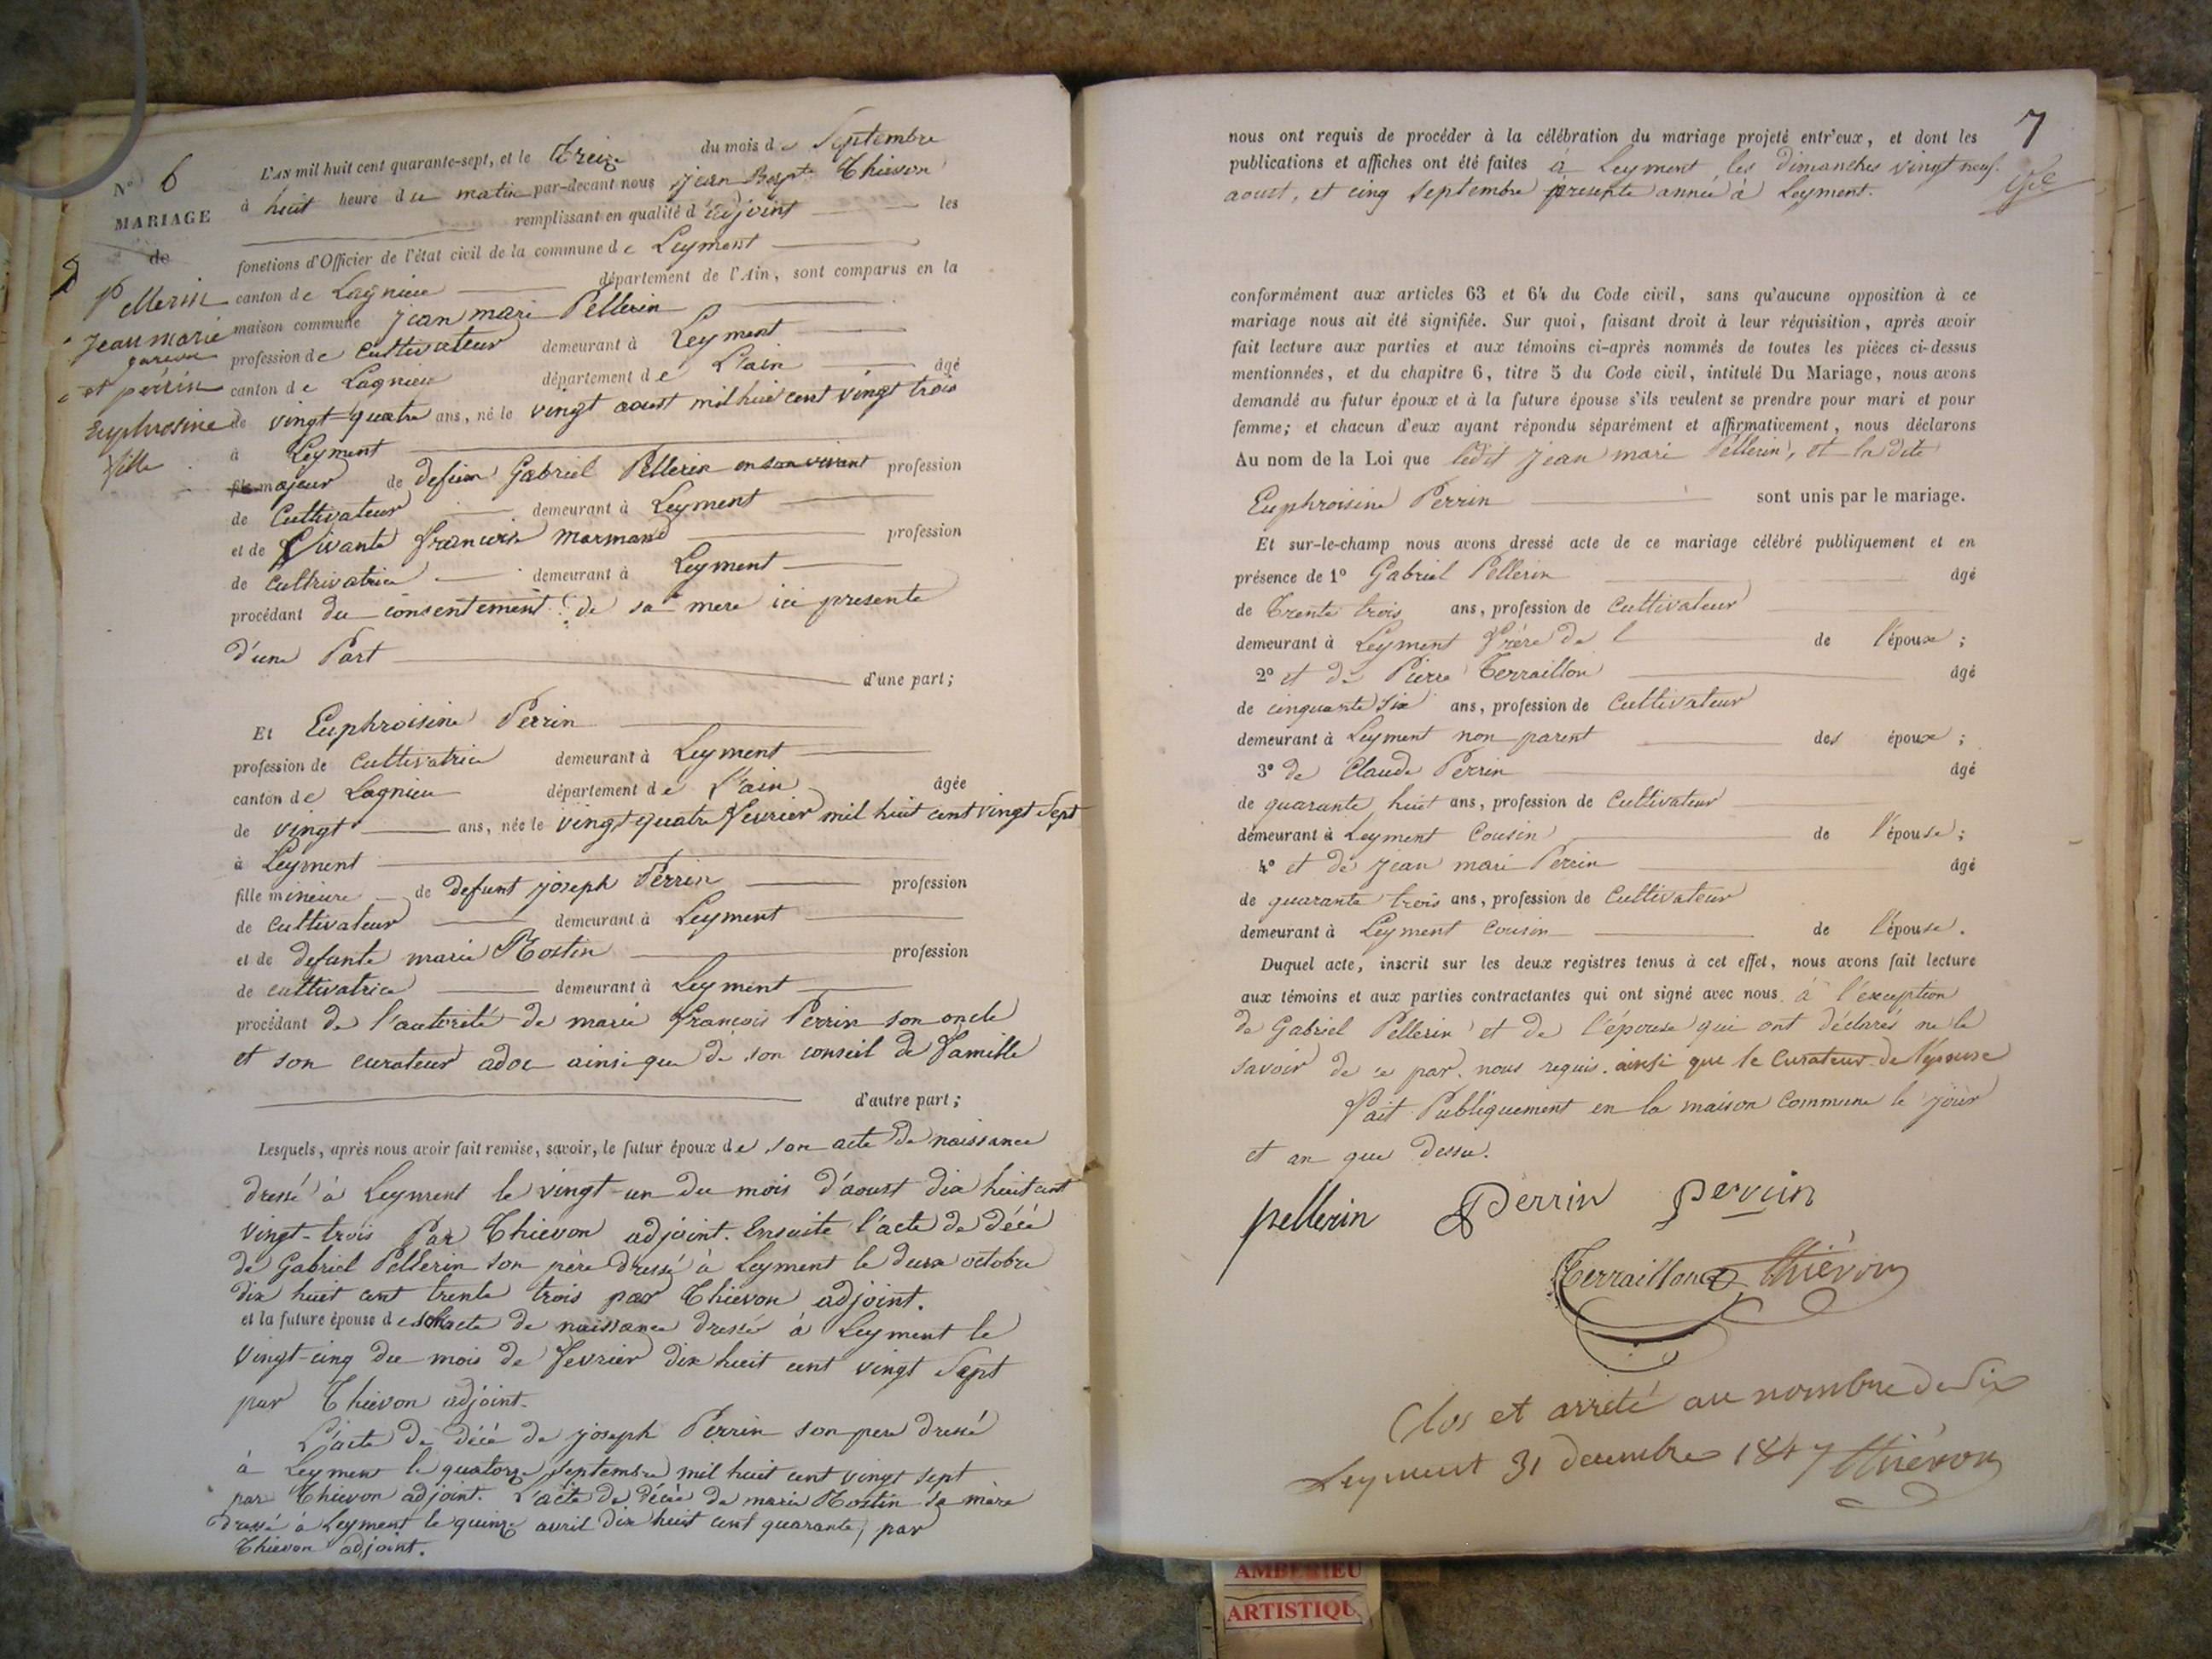 N° 6
MARIAGE
de
Pellerin
Jean marie
garçon
et perrin
Euphrosine
fille
L'AN mil huit cent quarante-sept, et le treize du mois de Septembre
à huit heure du matin par-devant nous jean Bapte Thievon
remplissant en qualité d'adjoint les
fonctions d'Officier de l'état civil de la commune de Leyment
canton de Lagnieu département de l'Ain, sont comparus en la
maison commune jean mari Pellerin
profession de Cultivateur demeurant à Leyment
canton de Lagnieu département de L'ain âgé
de vingt-quatre ans, né le vingt aoust mil huit cent vingt trois
à Leyment
fils majeur de defunt Gabriel Pellerin en son vivant profession
de Cultivateur demeurant à Leyment
et de Vivante françoise marmand profession
de Cultivatrice demeurant à Leyment
procédant du consentement de sa mere ici presente
d'une Part
d'une part;
Et Euphroisine Perrin
profession de Cultivatrice demeurant à Leyment
canton de Lagnieu département de l'ain âgée
de vingt ans, née le vingt quatre fevrier mil huit cent vingt sept
à Leyment
fille mineure de defunt joseph Perrin profession
de Cultivateur demeurant à Leyment
et de defunte marie Rostin profession
de cultivatrice demeurant à Leyment
procédant de l'autorité de marie françois Perrin son oncle
et son curateur adoc ainsi que de son conseil de famille
d'autre part;
Lesquels, après nous avoir fait remise, savoir, le futur époux de son acte de naissance
dressé à Leyment le vingt-un du mois d'aoust dix huit cent
vingt-trois Par Thievon adjoint. Ensuite l'acte de décé
de Gabriel Pellerin son père dressé à Leyment le deux octobre
dix huit cent trente trois par Thievon adjoint.
et la future épouse de son acte de naissance dressé à Leyment le
vingt-cinq du mois de fevrier dix huit cent vingt sept
par Thievon adjoint.
L'acte de décé de joseph Perrin son pere dressé
à Leyment le quatorze septembre mil huit cent vingt sept
par Thievon adjoint. L'acte de décès de marie Rostin sa mère
dressé à Leyment le quinze avril dix huit cent quarante, par
Thievon adjoint.
7
nous ont requis de procéder à la célébration du mariage projeté entr'eux, et dont les
publications et affiches ont été faites à Leyment les dimanches vingt neuf
aoust, et cinq septembre presente année à Leyment.
conformément aux articles 63 et 64 du Code civil, sans qu'aucune opposition à ce
mariage nous ait été signifiée. Sur quoi, faisant droit à leur réquisition, après avoir
fait lecture aux parties et aux témoins ci-après nommés de toutes les pièces ci-dessus
mentionnées, et du chapitre 6, titre 5 du Code civil, intitulé Du Mariage, nous avons
demandé au futur époux et à la future épouse s'ils veulent se prendre pour mari et pour
femme; et chacun d'eux ayant répondu séparément et affirmativement, nous déclarons
Au nom de la Loi que ledit jean mari Pellerin, et la dite
Euphroisine Perrin sont unis par le mariage.
Et sur-le-champ nous avons dressé acte de ce mariage célébré publiquement et en
présence de 1° Gabriel Pellerin âgé
de trente trois ans, profession de cultivateur
demeurant à Leyment frère de l de l'époux;
2° et de Pierre Terraillon âgé
de cinquante six ans, profession de Cultivateur
demeurant à Leyment non parent des époux;
3° de Claude Perrin âgé
de quarante huit ans, profession de Cultivateur
demeurant à Leyment Cousin de l'épouse;
4° et de jean mari Perrin âgé
de quarante trois ans, profession de Cultivateur
demeurant à Leyment cousin de l'épouse.
Duquel acte, inscrit sur les deux registres tenus à cet effet, nous avons fait lecture
aux témoins et aux parties contractantes qui ont signé avec nous à l'exception
de Gabriel Pellerin et de l'épouse qui ont déclarés ne le
savoir de ce par nous requis. ainsi que le curateur de l'épouse
Fait Publiquement en la maison Commune le jour
et an que dessu.
pellerin Perrin perrin
Terraillon Thiévon
Clos et arrêté au nombre de Six
Leyment 31 decembre 1847 Thiévon
AMBERIEU
ARTISTIQU